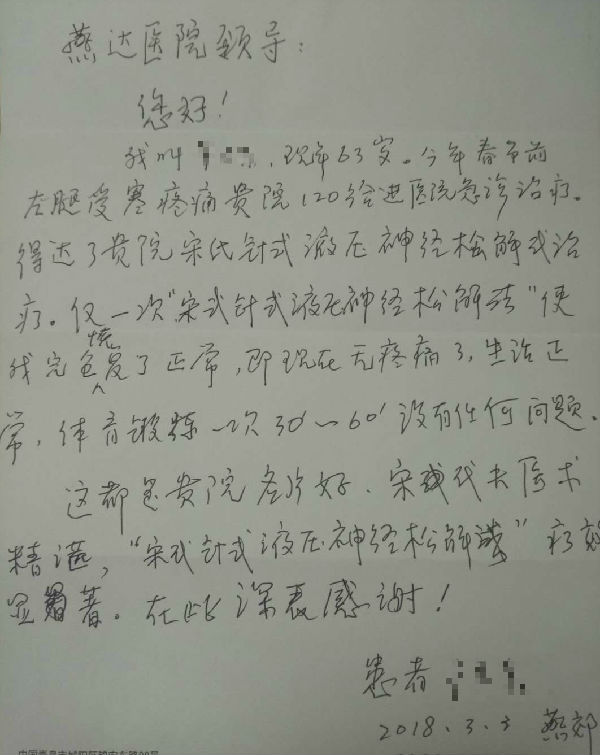 燕达医院领导：
您好！
我叫，现年63岁。今年春节前
左腿受寒疼痛贵院120给进医院急诊治疗。
得达了贵院宋氏针式液压神经松解式治
疗。仅一次"宋式针式液压神经松解法"使
我完全恢复了正常，即现在无疼痛了，生活正
常，体育锻炼一次30′~60′没有任何问题。
这都是贵院名片好、宋大夫医术
精湛，"宋式针式液压神经松解法"疗效
显著。在此深表感谢！
患者
2018.3.5 燕郊